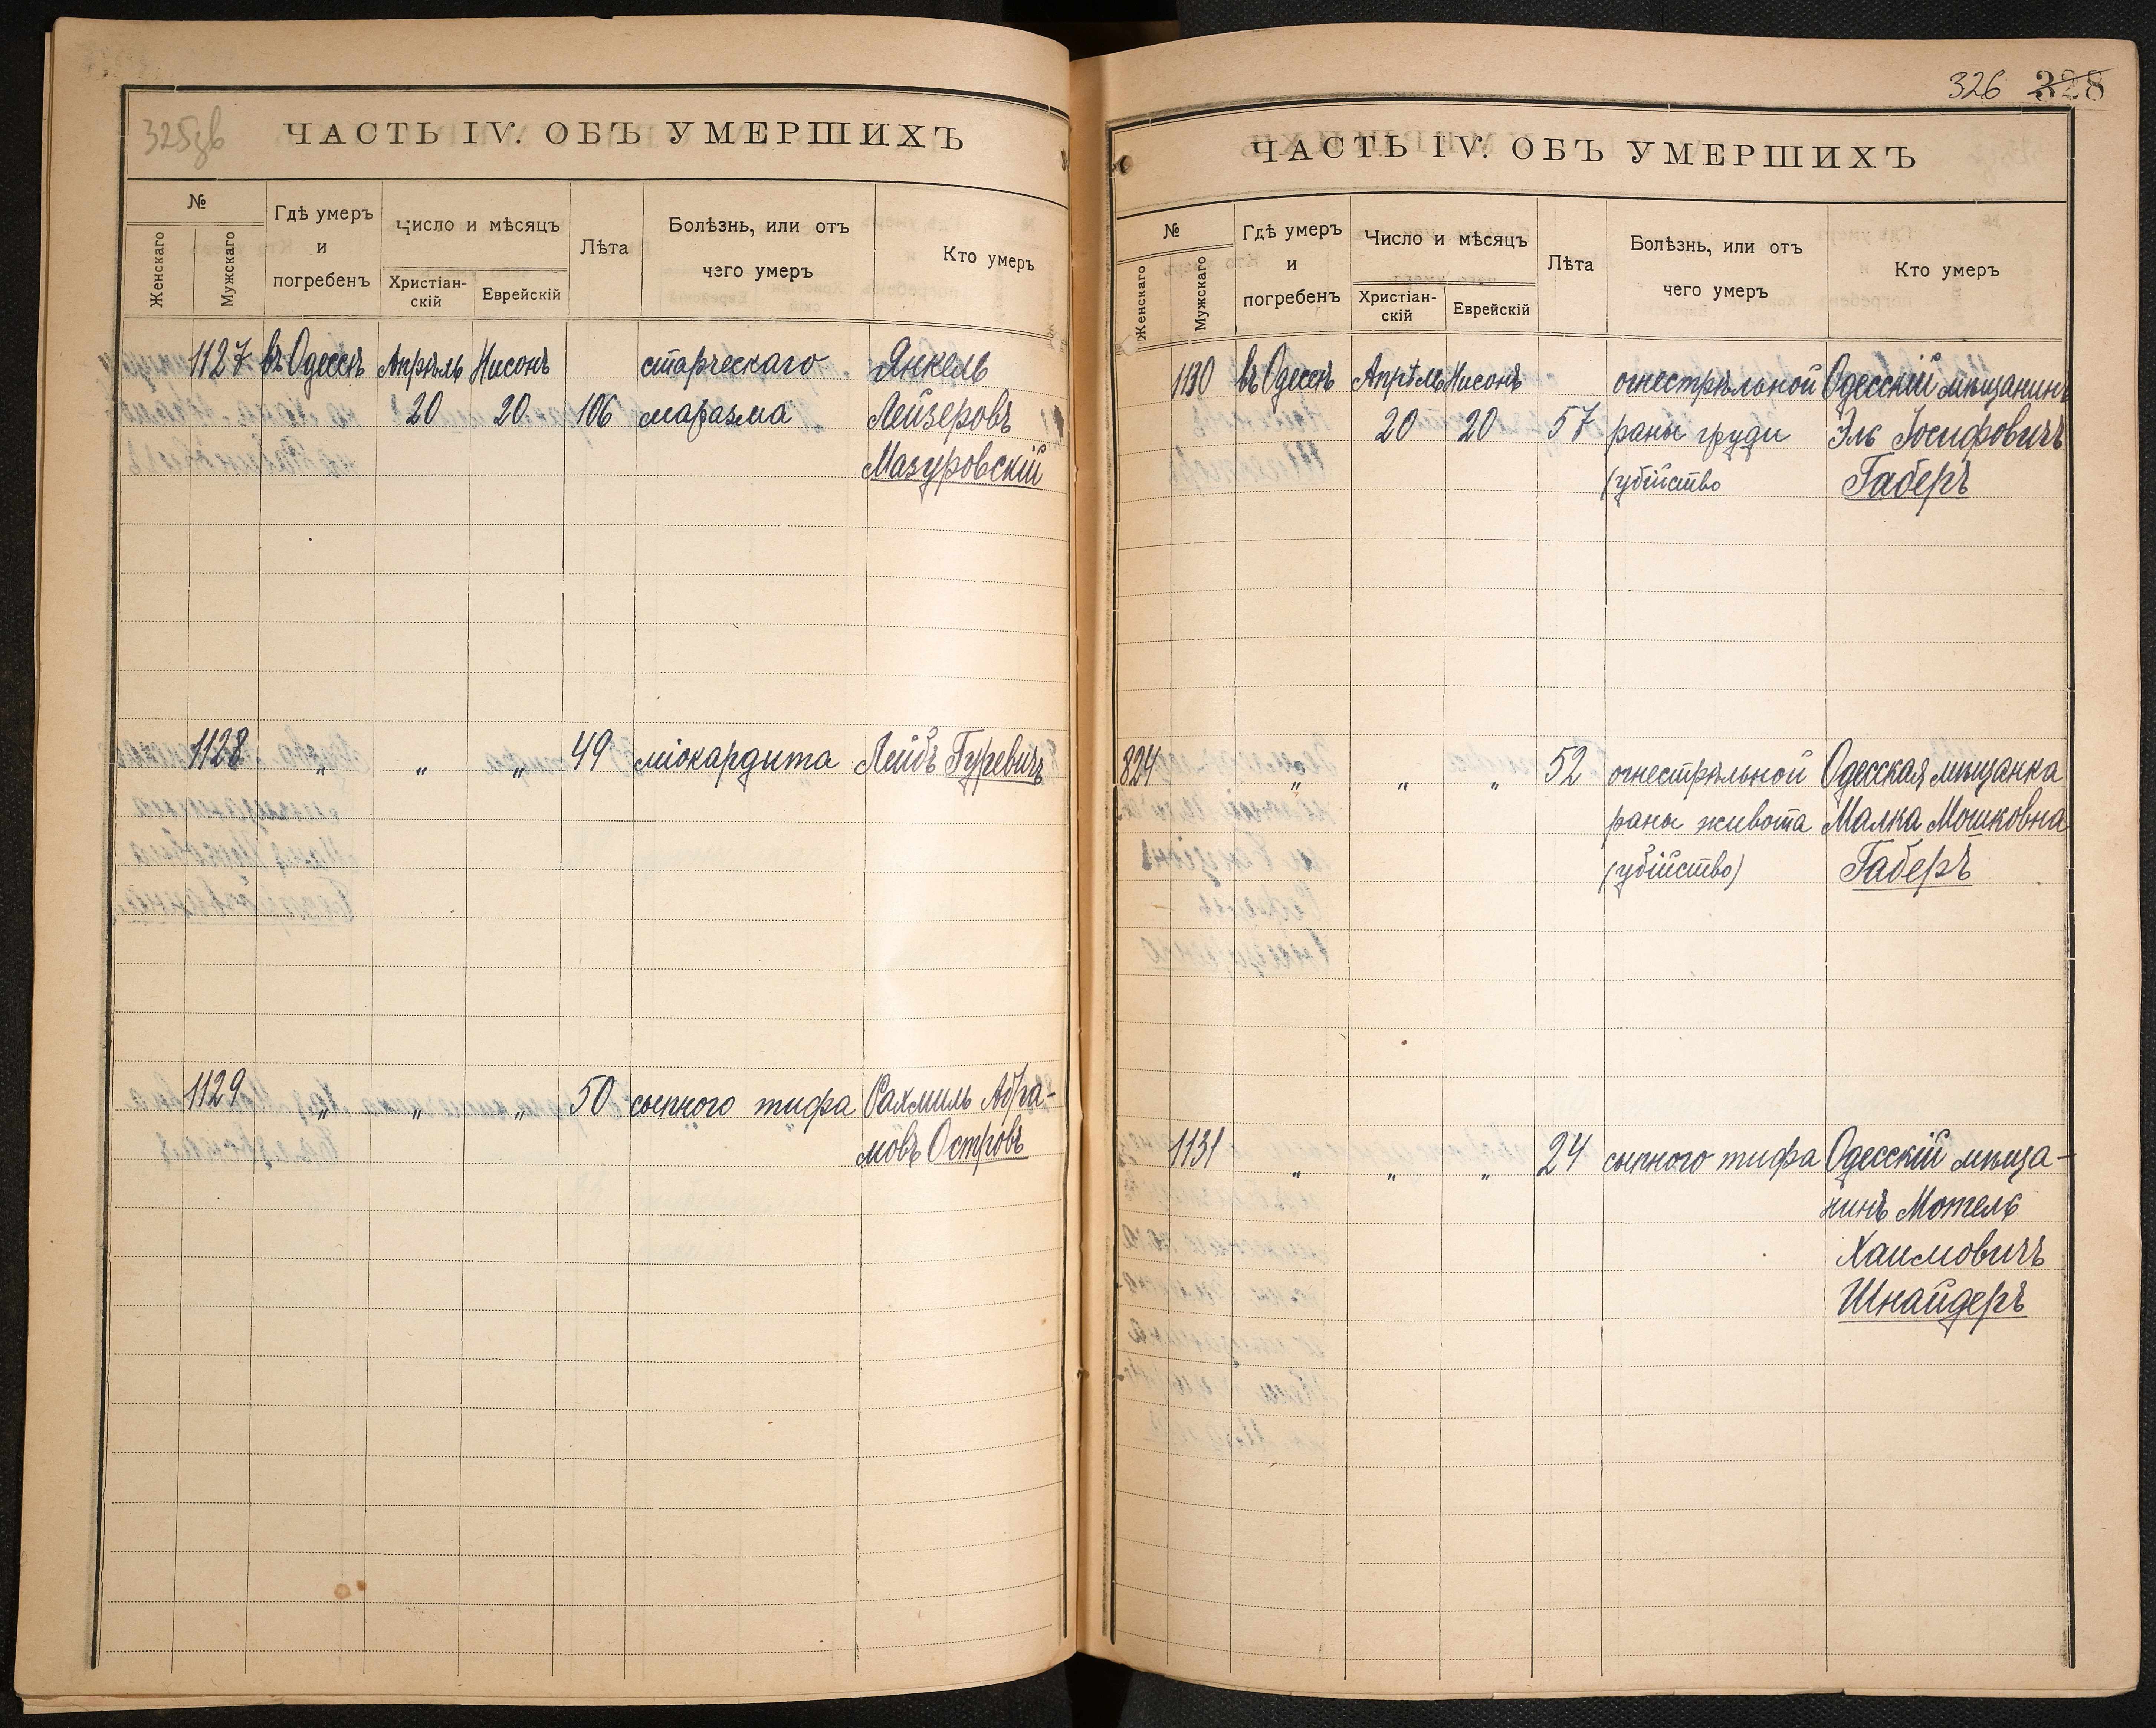 325зв
ЧАСТЬ IV. ОБЪ УМЕРШИХЪ
№
Женскаго
Мужскаго
Гдѣ умеръ
и
погребенъ
Число и мѣсяцъ
Христіан-
скій
Еврейскій
Лѣта
Болѣзнь, или отъ
чего умеръ
Кто умеръ
1127 въ Одессѣ Апрѣль Нисонъ старческаго Янкель
20 20 106 маразма Лейзеровъ
Мазуровскій
1128 „ „ „ 49 міокардита Лейбъ Гуревичъ
1129 „ „ „ 50 сыпного тифа Рахмиль Абра-
мовъ Островъ
326 328
ЧАСТЬ IV. ОБЪ УМЕРШИХЪ
№
Женскаго
Мужскаго
Гдѣ умеръ
и
погребенъ
Число и мѣсяцъ
Христіан-
скій
Еврейскій
Лѣта
Болѣзнь, или отъ
чего умеръ
Кто умеръ
1130 въ Одессѣ Апрѣль Нисонъ огнестрѣльной Одесскій мѣщанинъ
20 20 57 раны груди Эль Іосифовичъ
(убійство Габеръ
824 „ „ „ 52 огнестрѣльной Одесская мѣщанка
раны живота Малка Мошковна
(убійство) Габеръ
1131 „ „ „ 24 сыпного тифа Одесскій мѣща-
нинъ Мотель
Хаимовичъ
Шнайдеръ